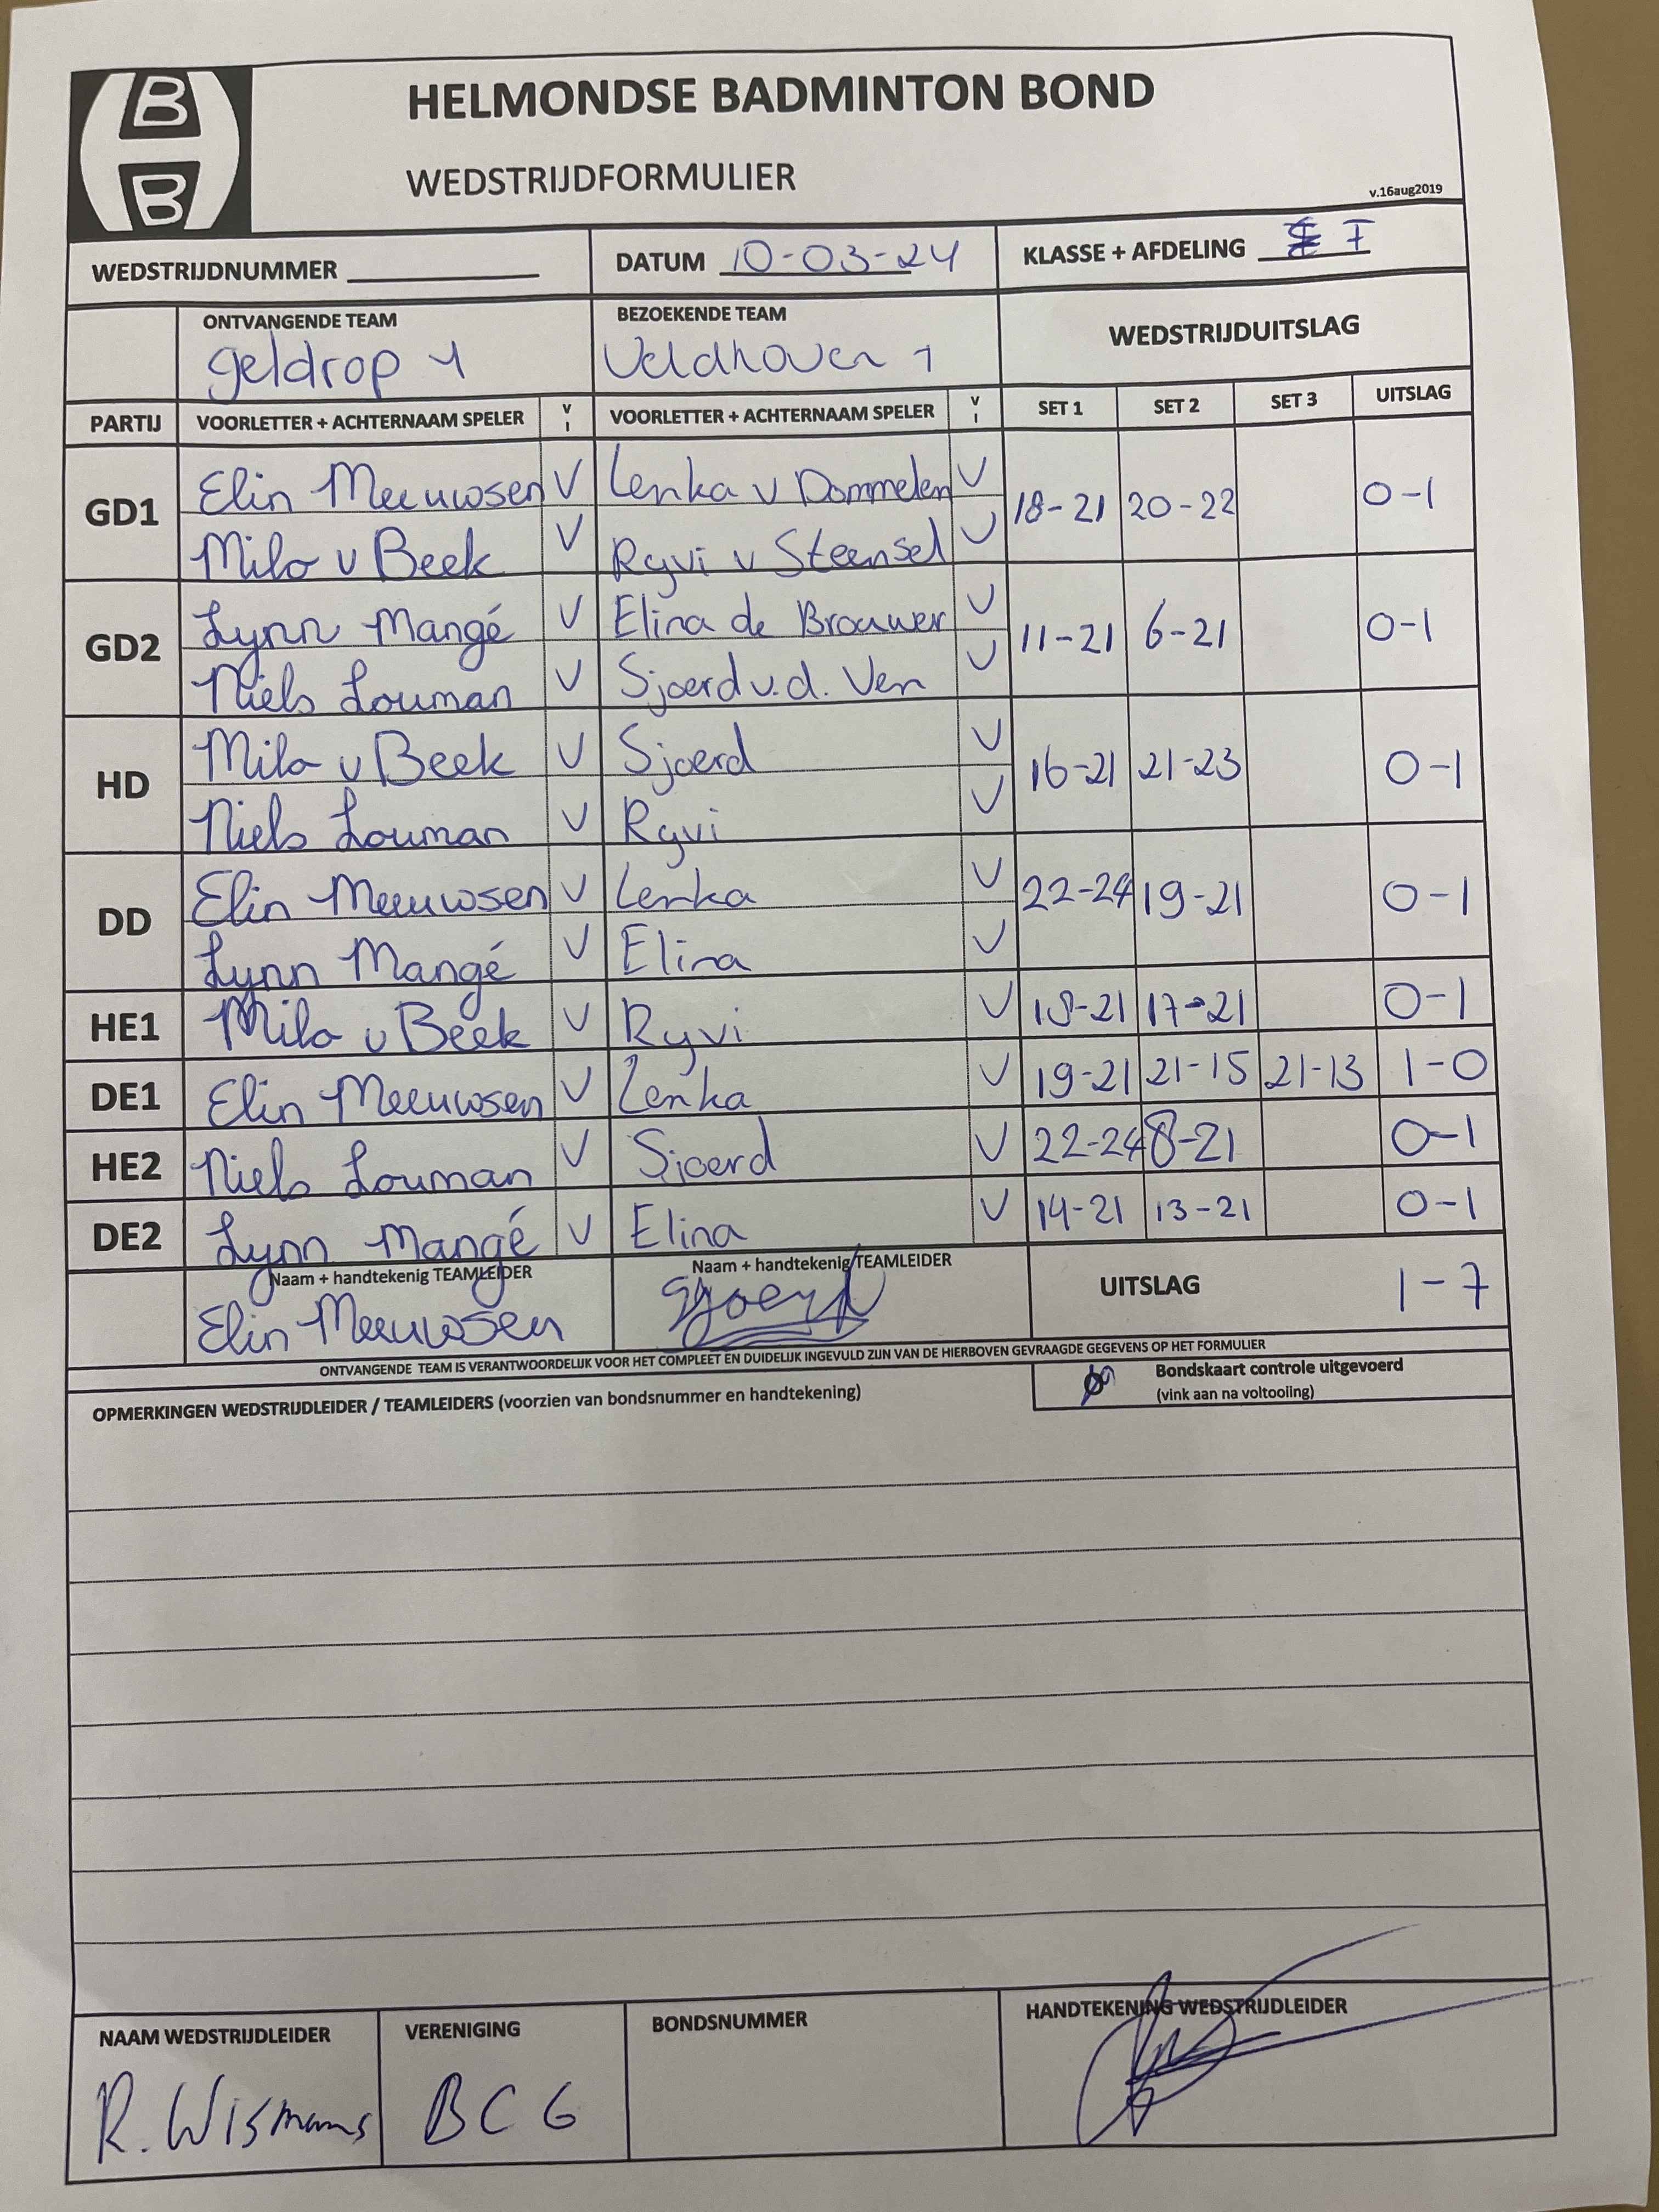 B
B
HELMONDSE BADMINTON BOND
WEDSTRIJDFORMULIER
v.16aug2019
WEDSTRIJDNUMMER
DATUM 10-03-24
KLASSE + AFDELING I
ONTVANGENDE TEAM
BEZOEKENDE TEAM
WEDSTRIJDUITSLAG
geldrop 1
Veldhoven 1
PARTIJ VOORLETTER + ACHTERNAAM SPELER V I VOORLETTER + ACHTERNAAM SPELER V I SET 1 SET 2 SET 3 UITSLAG
GD1 Elin Meeuwsen V Lenka v Dommelen V 18-21 20-22 0-1
Milo v Beek V Ryvi v Steensel V
GD2 Lynn Mangé V Elina de Brouwer V 11-21 6-21 0-1
Niels Louman V Sjoerd v.d. Ven V
HD Milo v Beek V Sjoerd V 16-21 21-23 0-1
Niels Louman V Ryvi V
DD Elin Meeuwsen V Lenka V 22-24 19-21 0-1
Lynn Mangé V Elina V
HE1 Milo v Beek V Ryvi V 18-21 17-21 0-1
DE1 Elin Meeuwsen V Lenka V 19-21 21-15 21-13 1-0
HE2 Niels Louman V Sjoerd V 22-24 8-21 0-1
DE2 Lynn Mangé V Elina V 14-21 13-21 0-1
Naam + handtekenig TEAMLEIDER
Naam + handtekenig TEAMLEIDER
UITSLAG 1-7
Elin Meeuwsen
Sjoerd
ONTVANGENDE TEAM IS VERANTWOORDELIJK VOOR HET COMPLEET EN DUIDELIJK INGEVULD ZIJN VAN DE HIERBOVEN GEVRAAGDE GEGEVENS OP HET FORMULIER
Bondskaart controle uitgevoerd
(vink aan na voltooiing)
OPMERKINGEN WEDSTRIJDLEIDER / TEAMLEIDERS (voorzien van bondsnummer en handtekening)
NAAM WEDSTRIJDLEIDER
VERENIGING
BONDSNUMMER
HANDTEKENING WEDSTRIJDLEIDER
R. Wismans
BCG